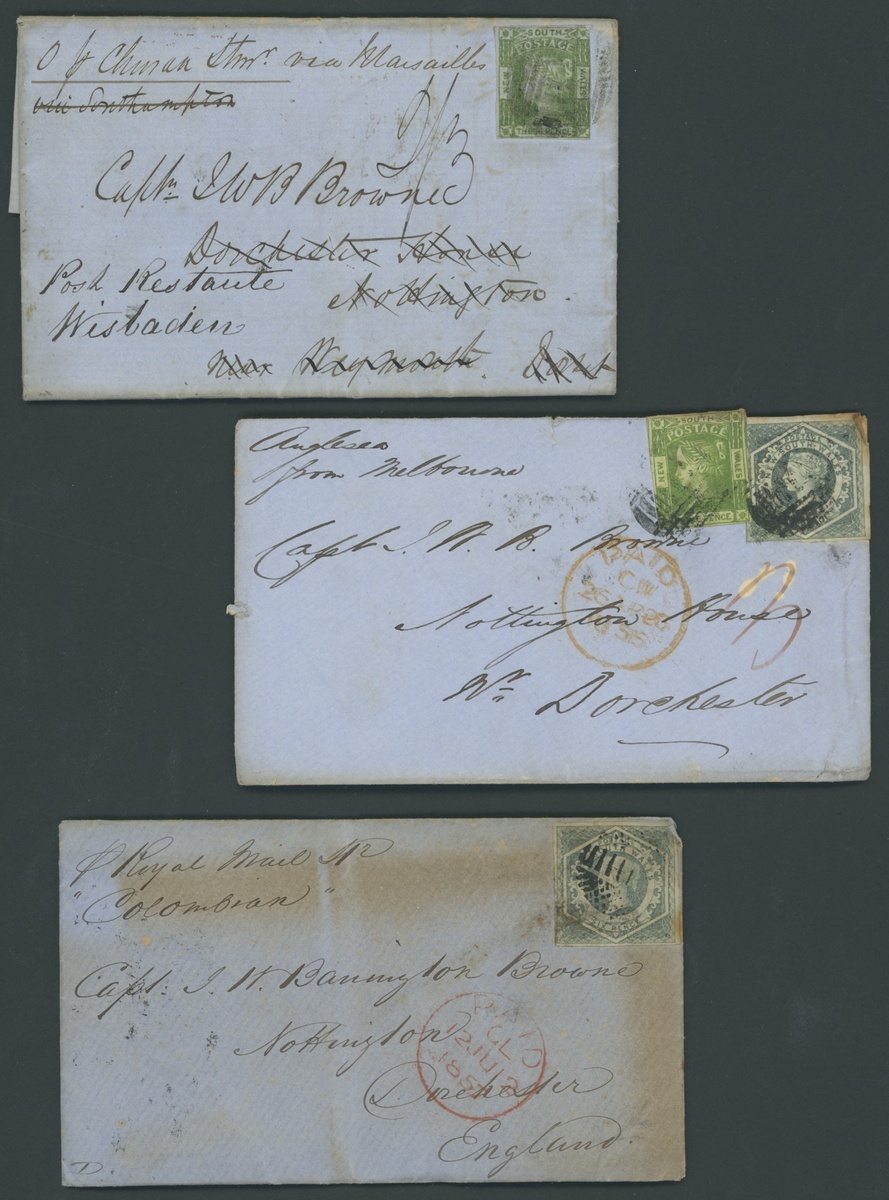 O p Chusan Stmr. via Marsailles
via Southampton
SOUTH
POSTAGE
NEW
WALES
Captn J W B Browne
Dorchester House
Post Restante
Nottington.
Wisbaden
near Weymouth. Dorset
Anglesea
from Melbourne
SOUTH
POSTAGE
NEW
WALES
PENCE
POSTAGE
SOUTH
Capt J. W. B. Browne
PAID
CW
26 AP 26
Nottington House
Nr Dorchester
p Royal Mail Sr
"Colombian"
WALES
SIX PENCE
Capt. J. W. Barrington Browne
PAID
GL
12 JU 12
185
Nottington
Dorchester
England.